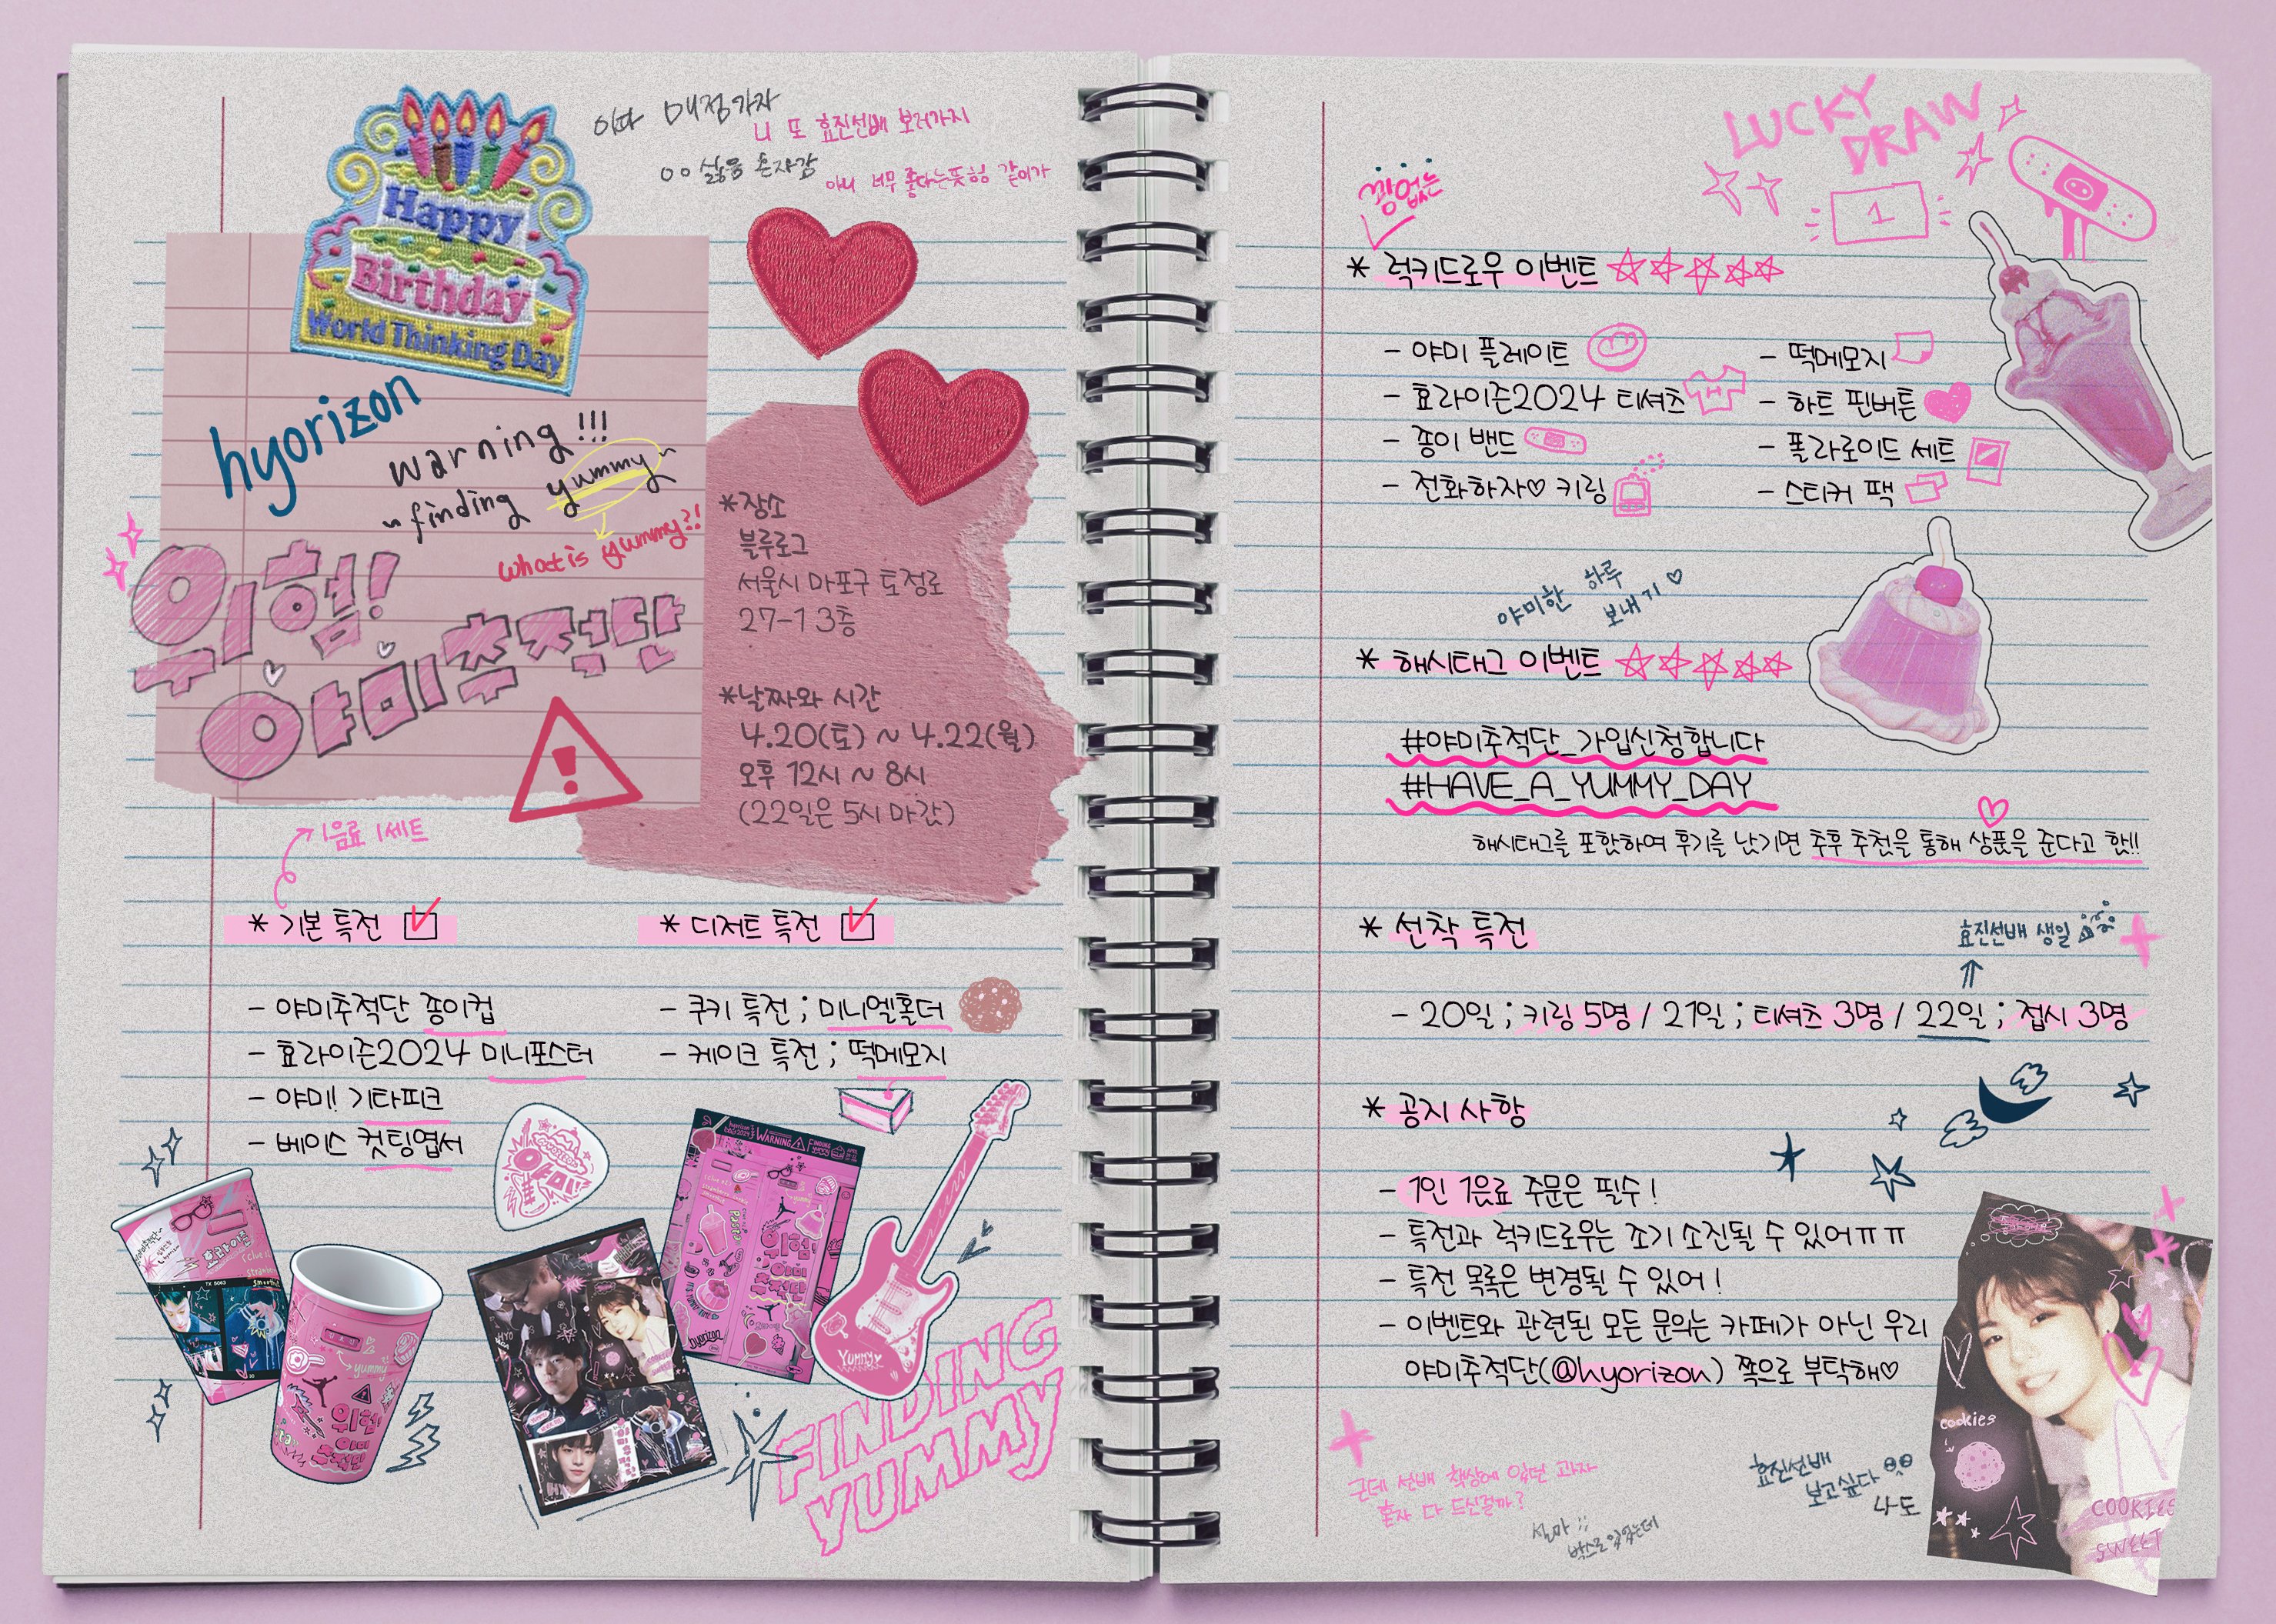 이따 매점가자
너 또 효진선배 보러가지
ㅇㅇ 싫음 혼자감
아니 너무 좋다는뜻임 같이가
Happy
Birthday
World Thinking Day
hyorizon
warning!!!
~finding yummy~
what is yummy?!
위험!
야미추적단
*장소
블루로그
서울시 마포구 토정로
27-1 3층
*날짜와 시간
4.20(토) ~ 4.22(월)
오후 12시 ~ 8시
(22일은 5시 마감)
1음료 1세트
* 기본 특전
- 야미추적단 종이컵
- 효라이즌2024 미니포스터
- 야미! 기타피크
- 베이스 컷팅엽서
* 디저트 특전
- 쿠키 특전 ; 미니엘홀더
- 케이크 특전 ; 떡메모지
WARNING FINDING
hyorizon
위험!
야미
추적단
효라이즌
yummy
위험
야미
추적단
YUMMY
FINDING
YUMMY
LUCKY
DRAW
1
꽝없는
* 럭키드로우 이벤트
- 야미 플레이트
- 효라이즌2024 티셔츠
- 종이 밴드
- 전화하자♡ 키링
- 떡메모지
- 하트 핀버튼
- 폴라로이드 세트
- 스티커 팩
야미한 하루
보내기♡
* 해시태그 이벤트
#야미추적단_가입신청합니다
#HAVE_A_YUMMY_DAY
해시태그를 포함하여 후기를 남기면 추후 추첨을 통해 상품을 준다고 함!!
* 선착 특전
효진선배 생일
- 20일 ; 키링 5명 / 21일 ; 티셔츠 3명 / 22일 ; 접시 3명
* 공지 사항
- 1인 1음료 주문은 필수!
- 특전과 럭키드로우는 조기 소진될 수 있어ㅠㅠ
- 특전 목록은 변경될 수 있어!
- 이벤트와 관련된 모든 문의는 카페가 아닌 우리
야미추적단(@hyorizon) 쪽으로 부탁해♡
근데 선배 책상에 있던 과자
혼자 다 드신걸까?
설마;;
박스로 있었는데
효진선배
보고싶다
나도
cookies
COOKIES
SWEET